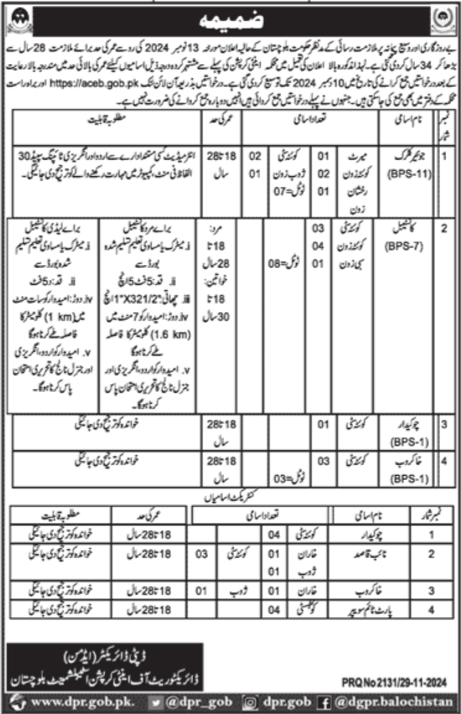 ضمیمہ
بے روزگاری اور وسیع پیمانہ پر ملازمت رسائی کے مدنظر حکومت بلوچستان کے حالیہ اعلان مورخہ 13 نومبر 2024 کی رو سے عمر کی حد برائے ملازمت 28 سال سے
بڑھا کر 34 سال کر دی گئی۔ لہٰذا مذکورہ بالا اعلان کی تعمیل میں محکمہ اینٹی کرپشن کی پہلے سے مشتہر کردہ درجہ ذیل اسامیوں کیلئے عمر کی بالائی حد میں مندرجہ بالا رعایت
کے بعد درخواستیں جمع کرانے کی تاریخ میں 10 دسمبر 2024 تک توسیع کر دی گئی ہے۔ درخواستیں بذریعہ آن لائن لنک https://aceb.gob.pk اور براہ راست
محکمہ کے دفتر میں بھی جمع کی جاسکتی ہیں۔ جنہوں نے پہلے درخواستیں جمع کروائی ہیں انہیں دوبارہ جمع کروانے کی ضرورت نہیں ہے۔
نمبر شمار نام اسامی تعداد اسامی عمر کی حد مطلوبہ قابلیت
1 جونیئر کلرک (BPS-11) میرٹ 01 کوئٹہ سٹی 02 18 تا 28 سال
کوئٹہ زون 02 ژوب زون 01
رخشان زون 01 ٹوٹل=07
انٹرمیڈیٹ کسی مستند ادارے سے اردو اور انگریزی ٹائپنگ سپیڈ 30
الفاظ فی منٹ، کمپیوٹر میں مہارت رکھنے والے کو ترجیح دی جائیگی۔
2 کانسٹیبل (BPS-7) کوئٹہ سٹی 03
کوئٹہ زون 04
سبی زون 01 ٹوٹل=08
مرد:
18 تا
28 سال
خواتین:
18 تا
30 سال
برائے مرد کانسٹیبل
i. میٹرک یا مساوی تعلیم تسلیم شدہ
بورڈ سے
ii. قد: 5 فٹ 5 انچ
iii. چھاتی: 32x1"1/2" انچ
iv. دوڑ: امیدوار کو 7 منٹ میں
(1.6 km) کلومیٹر کا فاصلہ
طے کرنا ہوگا
v. امیدوار کو اردو، انگریزی اور
جنرل نالج کا تحریری امتحان پاس
کرنا ہوگا۔
برائے لیڈی کانسٹیبل
i. میٹرک یا مساوی تعلیم تسلیم
شدہ بورڈ سے
ii. قد: 5 فٹ
iv. دوڑ: امیدوار کو سات منٹ
میں (1 km) کلومیٹر کا
فاصلہ طے کرنا ہوگا
v. امیدوار کو اردو، انگریزی
اور جنرل نالج کا تحریری امتحان
پاس کرنا ہوگا۔
3 چوکیدار (BPS-1) کوئٹہ سٹی 01 18 تا 28 سال خواندہ کو ترجیح دی جائیگی
4 خاکروب (BPS-1) کوئٹہ سٹی 03 ٹوٹل=03 18 تا 28 سال خواندہ کو ترجیح دی جائیگی
کنٹریکٹ اسامیاں
نمبر شمار نام اسامی تعداد اسامی عمر کی حد مطلوبہ قابلیت
1 چوکیدار کوئٹہ سٹی 04 18 تا 28 سال خواندہ کو ترجیح دی جائیگی
2 نائب قاصد خاران 01 کوئٹہ سٹی 03 18 تا 28 سال خواندہ کو ترجیح دی جائیگی
ژوب 01
3 خاکروب خاران 01 ژوب 01 18 تا 28 سال خواندہ کو ترجیح دی جائیگی
4 پارٹ ٹائم سویپر کوئٹہ سٹی 04 18 تا 28 سال خواندہ کو ترجیح دی جائیگی
ڈپٹی ڈائریکٹر (ایڈمن)
ڈائریکٹوریٹ آف اینٹی کرپشن اسٹیبلشمنٹ بلوچستان
PRQ No 2131/29-11-2024
www.dpr.gob.pk. @dpr_gob dpr.gob @dgpr.balochistan